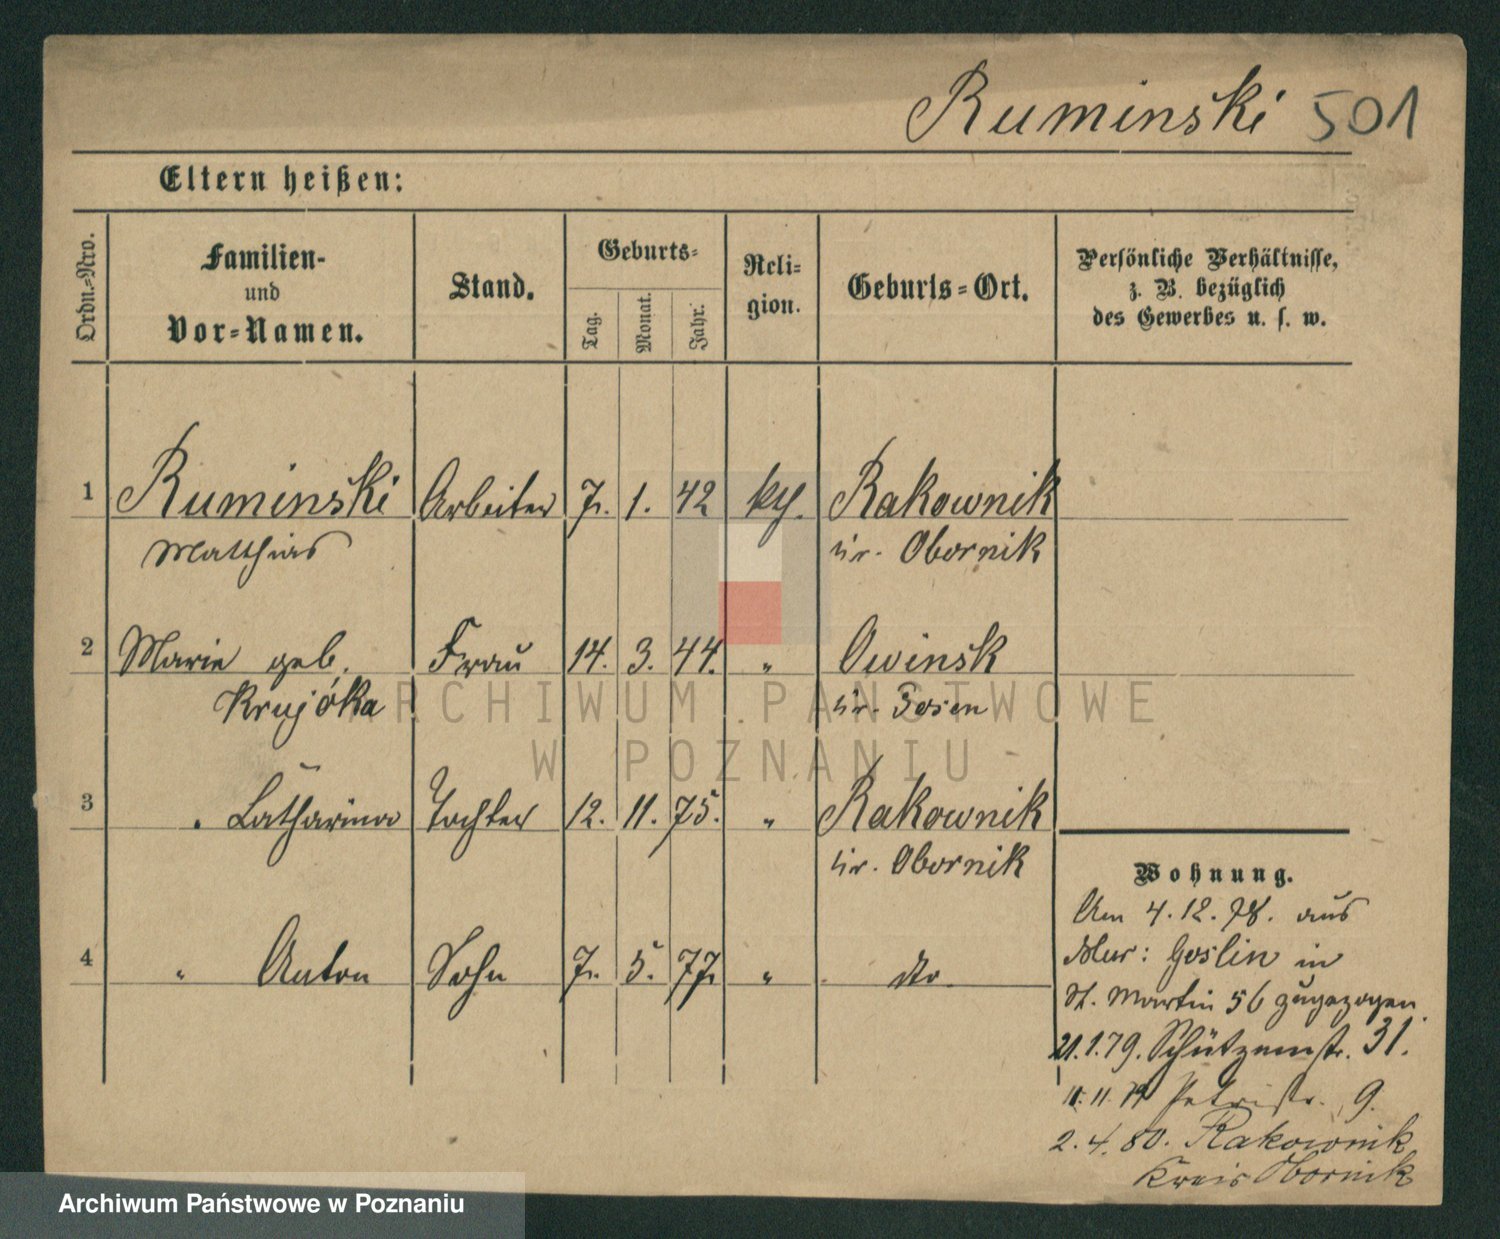 Ruminski 501
Eltern heißen:
Ordn.-Nro.
Familien-
und
Vor-Namen.
Stand.
Geburts-
Tag.
Monat.
Jahr.
Reli-
gion.
Geburts-Ort.
Persönliche Verhältnisse,
z. B. bezüglich
des Gewerbes u. s. w.
1 Ruminski Arbeiter 7. 1. 42 Rakownik
Matthias Kr. Obornik
2 Marie geb. Frau 14. 3. 44. " Owinsk
Kr. Posen
3 " Catharina Tochter 12. 11. 75. " Rakownik
Kr. Obornik
4 " Anton Sohn 7. 5. 77. " dto.
Wohnung.
Am 4.12.78. aus
Mur: Goslin in
St. Martin 56 zugezogen.
21.1.79. Schützenstr. 31.
11.11.79 Petristr. 9.
2.4.80. Rakownik
Kreis Obornik
ARCHIWUM PAŃSTWOWE
W POZNANIU
Archiwum Państwowe w Poznaniu